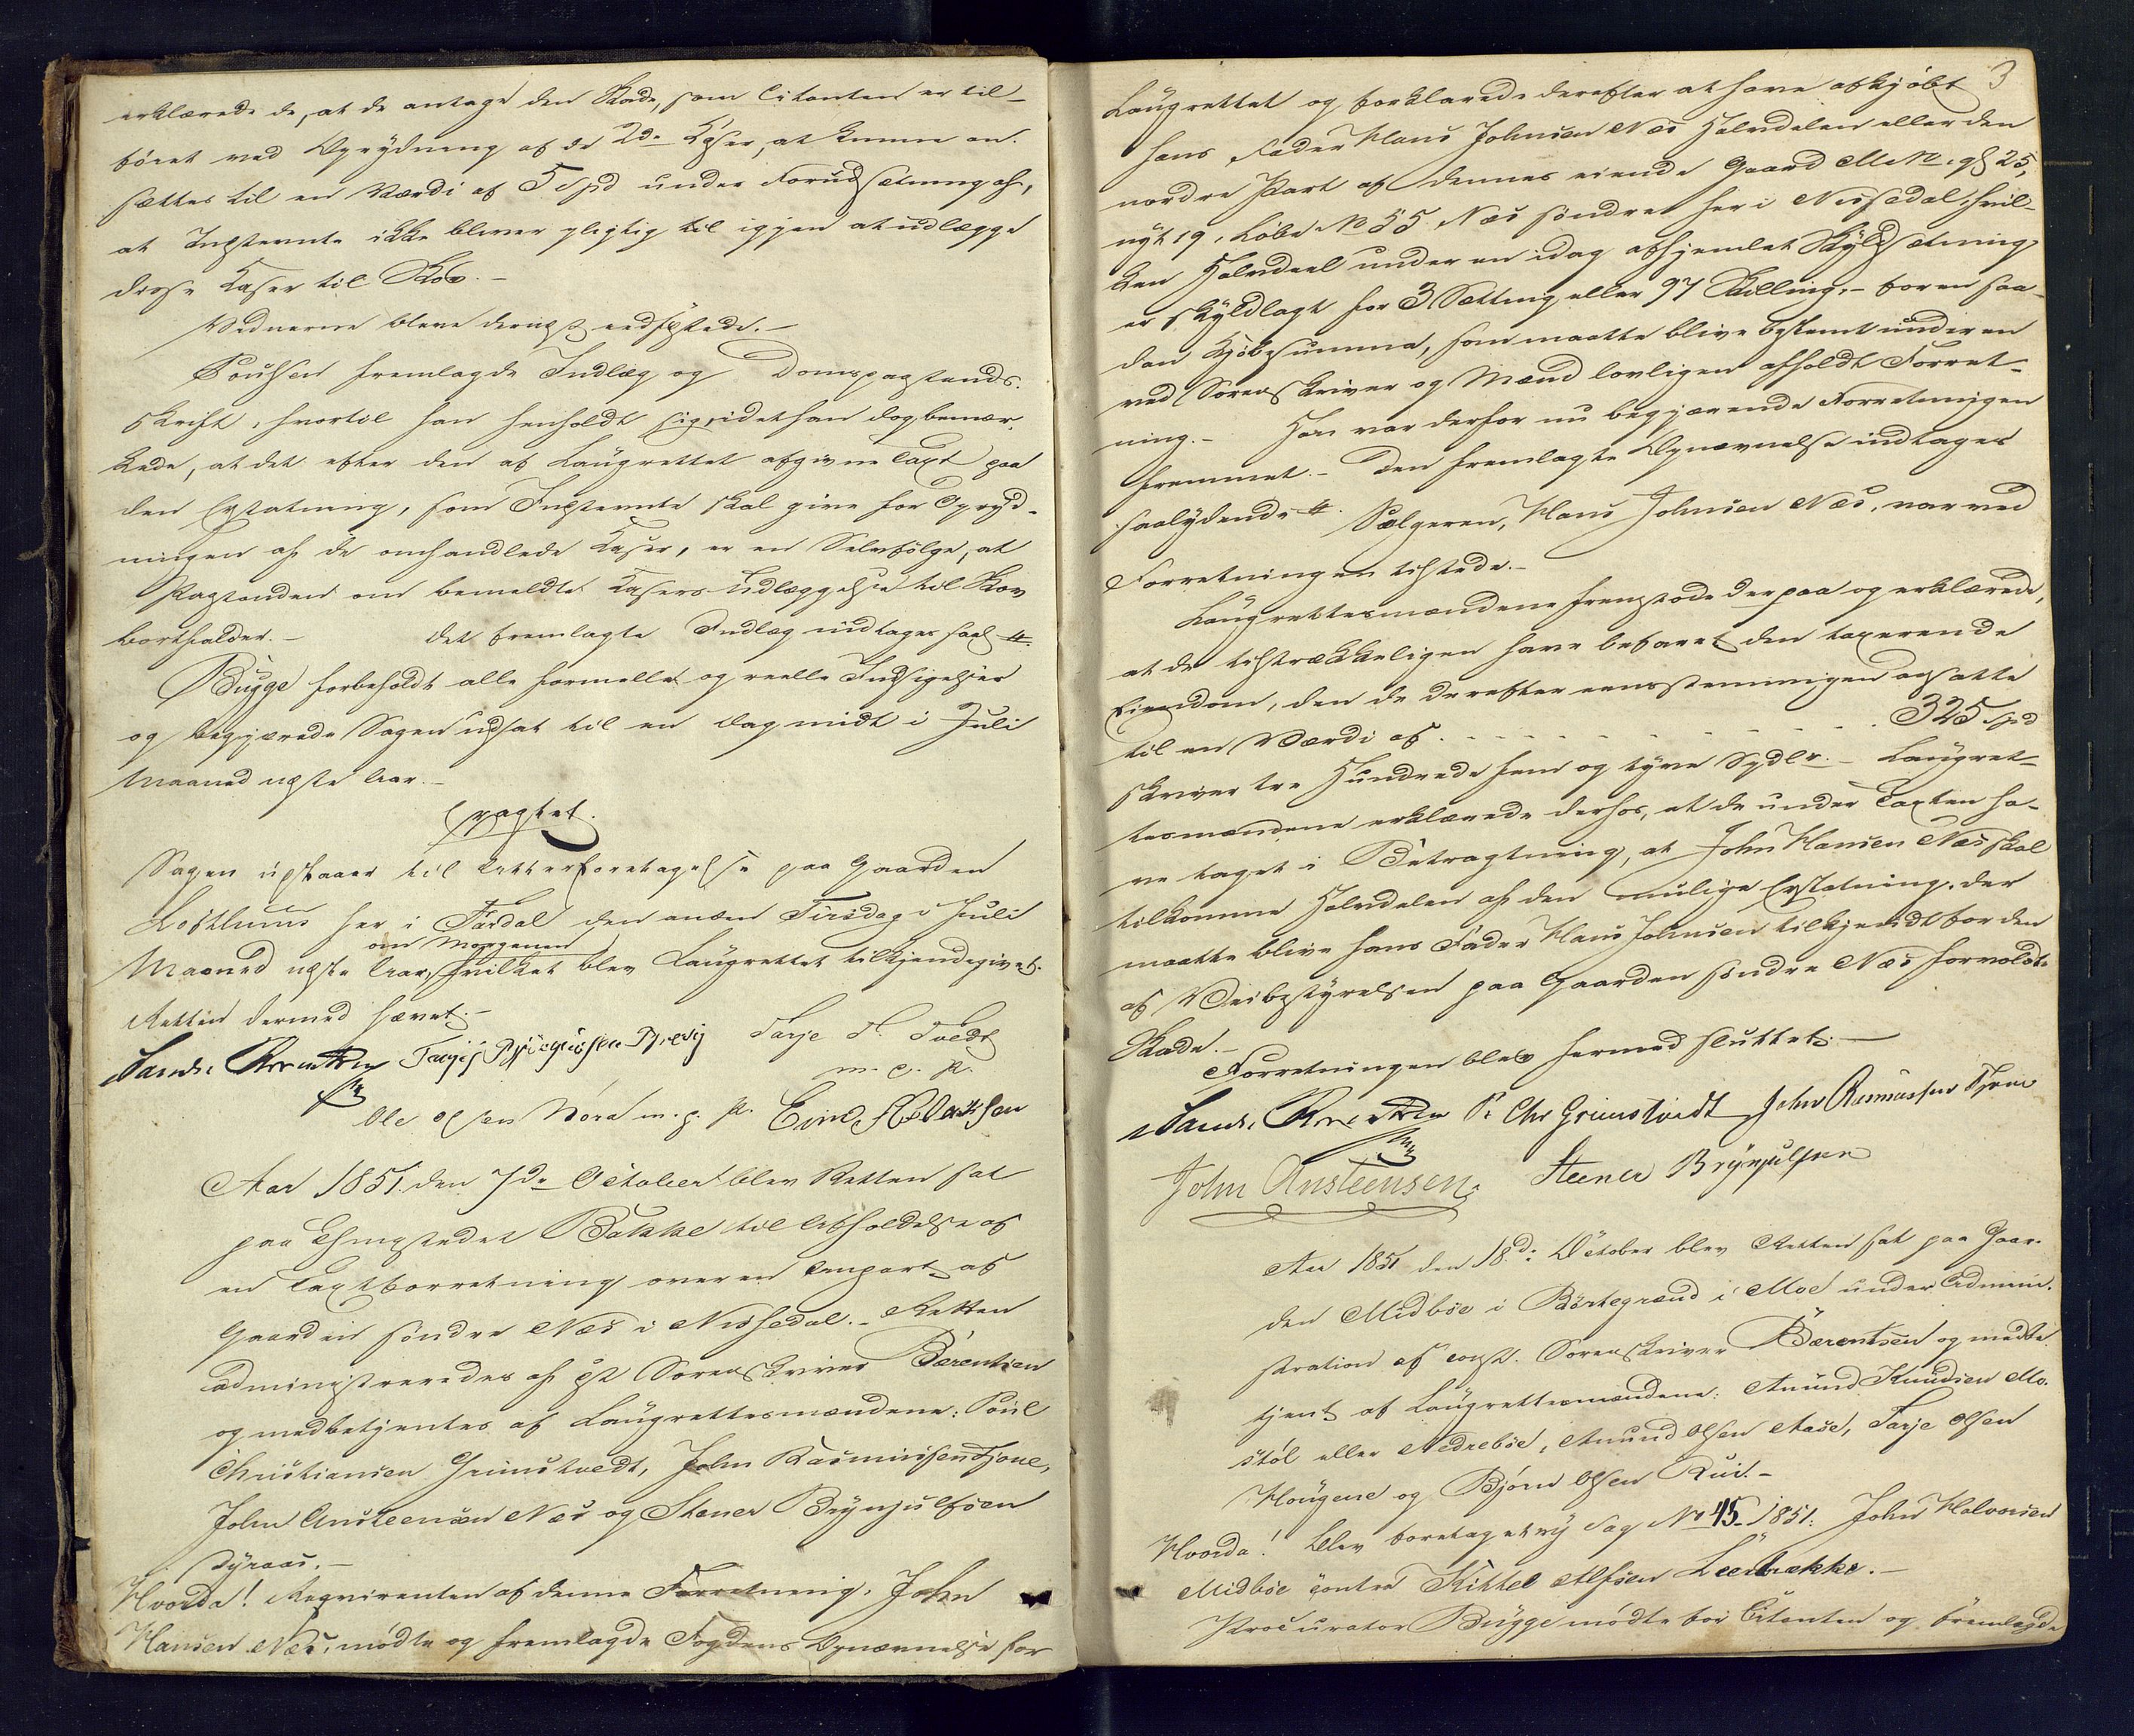 erklærede de, at de antage den Skade, som Citanten er til-
föiet ved Oprydning af de 2de Kaser, at kunne an-
sættes til en Værdi af 5 Spd under Forudsætning af,
at Indstevnte ikke bliver pligtig til igjen at udlægge
disse Kaser til Skov.-
Vidnerne bleve dernæst edfæstede.-
Poulsen fremlagde Indlæg og Domspaastands-
skrift, hvortil han henholdt sig, idet han dog bemær-
kede, at det efter den af Laugrettet afgivne Taxt paa
den Erstatning, som Indstevnte skal give for Opryd-
ningen af de omhandlede Kaser, er en Selvfölge, at
Paastanden om bemeldte Kasers Udlæggelse til Skov
bortfalder.- Det fremlagte Indlæg indtages saal
Bugge forbeholdt alle formelle og reelle Indsigelser
og begjærede Sagen udsat til en Dag midt i Juli
Maaned næste Aar.-
Eragtet.
Sagen udstaaer til Atterforetagelse paa Gaarden
Lofthuus her i Fardal den anden Tirsdag i Juli
om Morgenen
Maaned næste Aar, hvilket blev Laugrettet tilkjendegivet.
Retten dermed hævet.-
Tarje T. Tvedt
m. p. P.
Ole Olsen Nora m. p. P.
Aar 1851 den 7de October blev Retten sat
paa Thingstedet Bakke til Afholdelse af
en Taxtforretning over en Anpart af
Gaarden söndre Næs i Nissedal.- Retten
administreredes af cst Sorenskriver Barentsen
og medbetjentes af Laugrettesmændene: Poul
Christiansen Grimstvedt, John Rasmussen Tjone,
John Austeensen Næs og Stener Brynjulfsen
Dyraas.-
Hvorda! Reqvirenten af denne Forretning, John
Hansen Næs, mödte og fremlagde Fogdens Opnævnelse for
3
Laugrettet og forklarede derefter at have afkjöbt
hans Fader Hans Johnsen Næs Halvdelen eller den
nordre Part af dennes eiende Gaard M. No. gl 25,
nyt 19, Löbe No 55 Næs söndre her i Nissedal, hvil-
ken Halvdeel under en idag afhjemlet Skyldsætning
er skyldlagt for 3 Sætting eller 97 Skilling,- for en saa-
dan Kjöbesumma, som maatte blive bestemt under en
ved Sorenskriver og Mænd lovligen afholdt Forret-
ning.- Han var derfor nu begjærende Forretningen
fremmet.- Den fremlagte Opnævnelse indtages
saalydende Sælgeren, Hans Johnsen Næs, var ved
Forretningen tilstede.-
Laugrettesmændene fremstode derpaa og erklærede,
at de tilstrækkeligen have befaret den taxerende
Eiendom, den de derefter eensstemmigen ansatte
til en Værdi af . . . . . . . . . . 325 Spd
skriver tre Hundrede fem og tyve Spdlr.- Laugret-
tesmændene erklærede derhos, at de under Taxten ha-
ve taget i Betragtning, at John Hansen Næs skal
tilkomme Halvdelen af den mulige Erstatning, der
maatte blive hans Fader Hans Johnsen tilkjendt for den
af Veibestyrelsen paa Gaarden söndre Næs forvoldte
Skade.-
Forretningen blev hermed sluttet.-
P. Chr Grimstvedt John Rasmussen Tjone
John Austeensen Steener Brÿnjulfsen
Aar 1851 den 18d: October blev Retten sat paa Gaar-
den Midböe i Börtegrend i Moe under Admini-
stration af const. Sorenskriver Barentsen og medbe-
tjent af Laugrettesmændene: Anund Knudsen Mo-
stöl eller Nedreböe, Anund Olsen Aase, Tarje Olsen
Hougene og Bjørn Olsen Rui.-
Hvorda! Blev foretaget ny Sag No 45- 1851: John Halvorsen
Midböe contra Kittel Alfsen Leebrække.-
Procurator Bugge mödte for Citanten og fremlagde